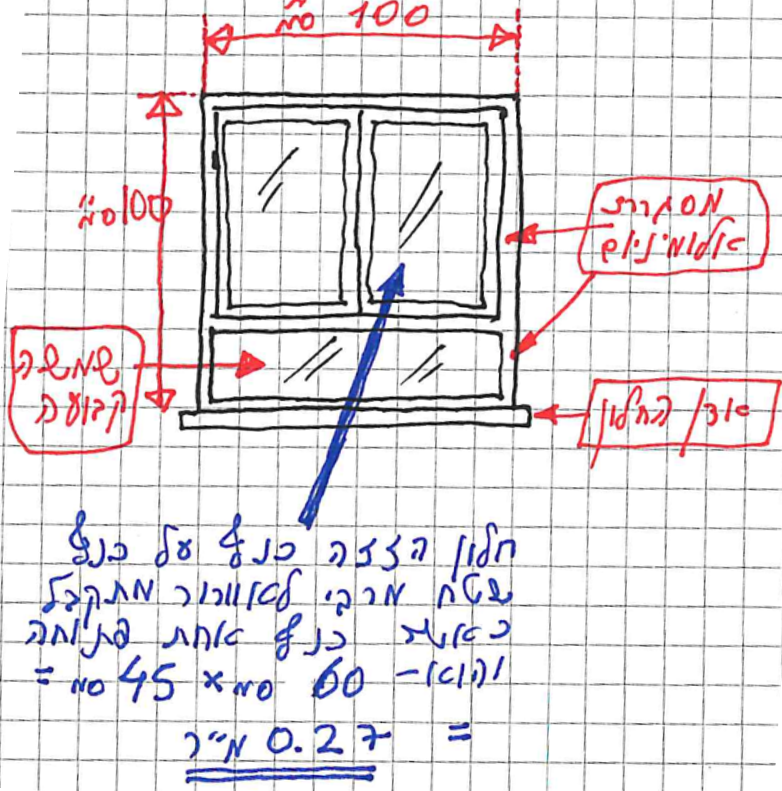 100 ס"מ
100 ס"מ
מסגרת
אלומיניום
שמשה
קבועה
אדן החלון
חלון הזזה כנף על כנף
שטח מרבי לאוורור מתקבל
כאשר כנף אחת פתוחה
והוא- 60 סמ × 45 סמ =
= 0.27 מ"ר